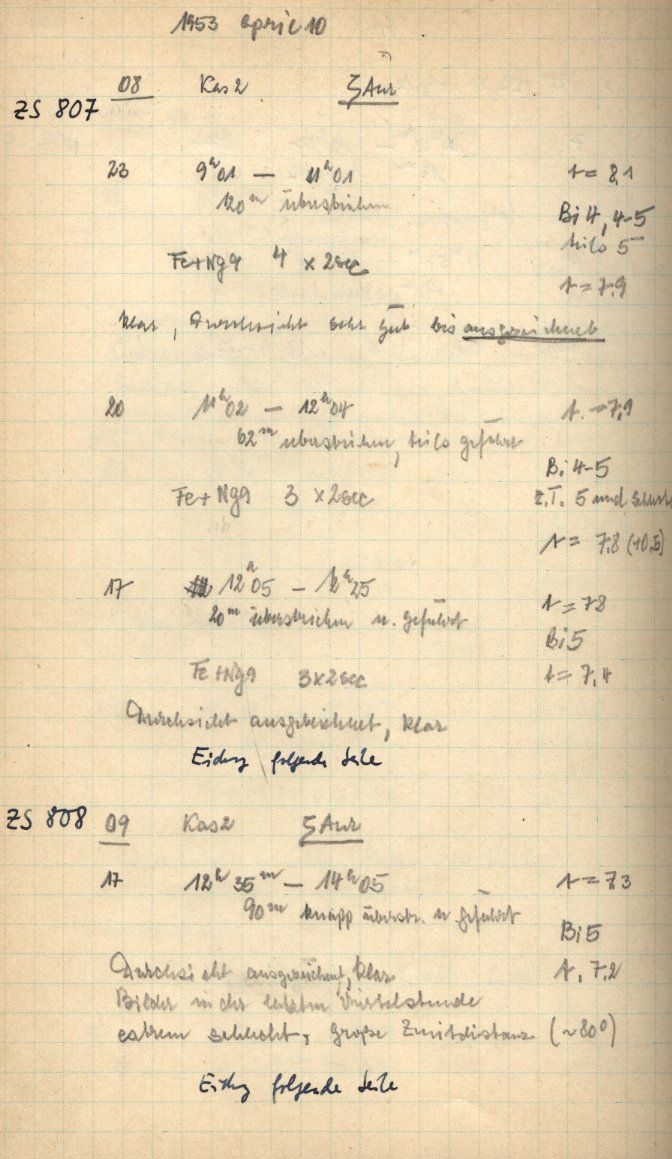 1953 april 10
ZS 807 08 Kas2 ζAur
23 9ʰ01 — 11ʰ01 t = 8,1
120ᵐ überstrichen Bi 4, 4-5
teils 5
Fe+Ng9 4 x 2sec t = 7,9
klar, Durchsicht sehr gut bis ausgezeichnet
20 11ʰ02 — 12ʰ04 t. = 7,9
62ᵐ überstrichen, teils geführt
Bi 4-5
Fe+Ng9 3 x 2sec z.T. 5 und
t = 7,8 (+0,5)
17 12ʰ05 — 12ʰ25 t = 78
20ᵐ überstrichen u. geführt
Bi 5
Fe+Ng9 3x2sec t = 7,4
Durchsicht ausgezeichnet, klar
Eichg folgende Seite
ZS 808 09 Kas2 ζAur
17 12ʰ35ᵐ — 14ʰ05 t = 7,3
90ᵐ knapp überstr. u geführt
Bi 5
Durchsicht ausgezeichnet, klar t. 7,2
Bilder in der letzten Viertelstunde
extrem schlecht, große Zenitdistanz (~80°)
Eichg folgende Seite